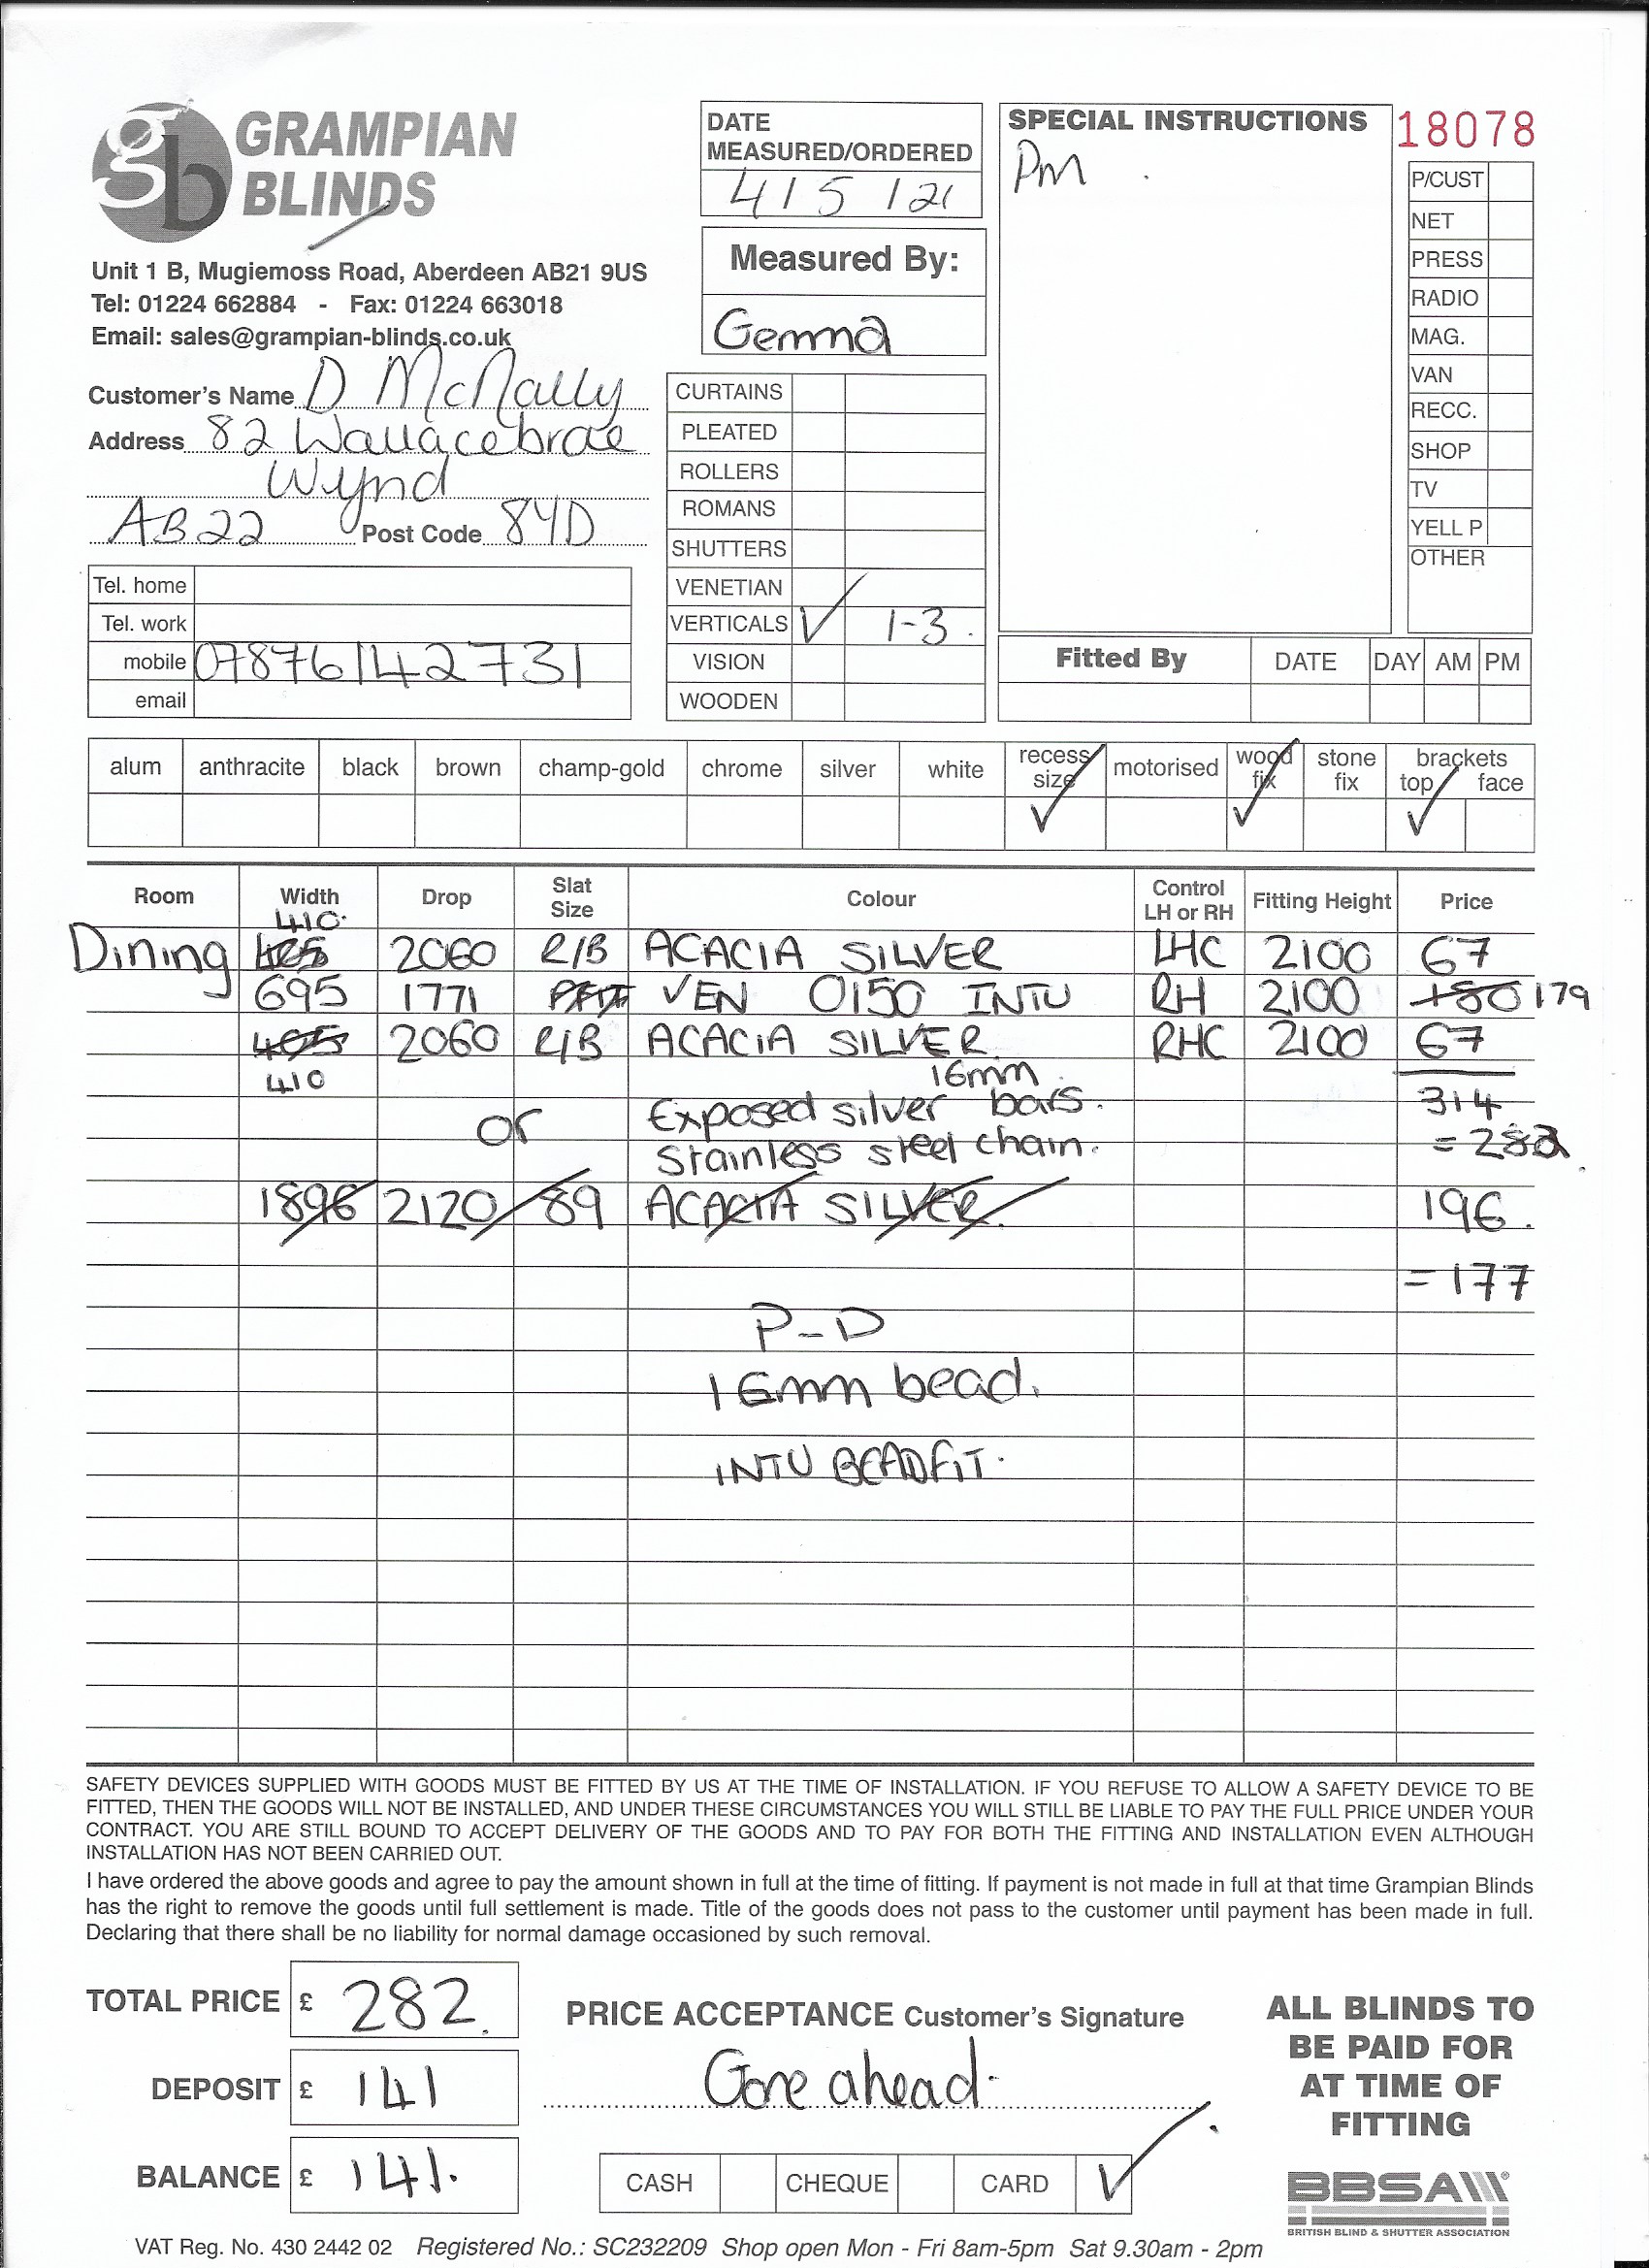 gb GRAMPIAN
BLINDS
Unit 1 B, Mugiemoss Road, Aberdeen AB21 9US
Tel: 01224 662884 - Fax: 01224 663018
Email: sales@grampian-blinds.co.uk
Customer's Name D McNally
Address 82 Wallacebrae
Wynd
AB22 Post Code 8YD
Tel. home
Tel. work
mobile 07876142731
email
DATE
MEASURED/ORDERED
4/5/21
Measured By:
Gemma
CURTAINS
PLEATED
ROLLERS
ROMANS
SHUTTERS
VENETIAN
VERTICALS ✓ 1-3.
VISION
WOODEN
SPECIAL INSTRUCTIONS
Pm
18078
P/CUST
NET
PRESS
RADIO
MAG.
VAN
RECC.
SHOP
TV
YELL P
OTHER
Fitted By DATE DAY AM PM
alum anthracite black brown champ-gold chrome silver white recess size motorised wood fix stone fix brackets top face
✓ ✓ ✓
Room Width Drop Slat Size Colour Control LH or RH Fitting Height Price
410.
Dining 2060 R/B ACACIA SILVER LHC 2100 67
695 1771 VEN 0150 INTU RH 2100 180 179
405 2060 R/B ACACIA SILVER RHC 2100 67
410 16mm
Exposed silver bars. 314
or Stainless steel chain. = 282
1896 2120 89 ACACIA SILVER. 196.
= 177
P-D
16mm bead.
INTU BEADFIT.
SAFETY DEVICES SUPPLIED WITH GOODS MUST BE FITTED BY US AT THE TIME OF INSTALLATION. IF YOU REFUSE TO ALLOW A SAFETY DEVICE TO BE
FITTED, THEN THE GOODS WILL NOT BE INSTALLED, AND UNDER THESE CIRCUMSTANCES YOU WILL STILL BE LIABLE TO PAY THE FULL PRICE UNDER YOUR
CONTRACT. YOU ARE STILL BOUND TO ACCEPT DELIVERY OF THE GOODS AND TO PAY FOR BOTH THE FITTING AND INSTALLATION EVEN ALTHOUGH
INSTALLATION HAS NOT BEEN CARRIED OUT.
I have ordered the above goods and agree to pay the amount shown in full at the time of fitting. If payment is not made in full at that time Grampian Blinds
has the right to remove the goods until full settlement is made. Title of the goods does not pass to the customer until payment has been made in full.
Declaring that there shall be no liability for normal damage occasioned by such removal.
TOTAL PRICE £ 282.
DEPOSIT £ 141
BALANCE £ 141.
PRICE ACCEPTANCE Customer's Signature
Gone ahead.
CASH CHEQUE CARD ✓
ALL BLINDS TO
BE PAID FOR
AT TIME OF
FITTING
BBSA
BRITISH BLIND & SHUTTER ASSOCIATION
VAT Reg. No. 430 2442 02 Registered No.: SC232209 Shop open Mon - Fri 8am-5pm Sat 9.30am - 2pm